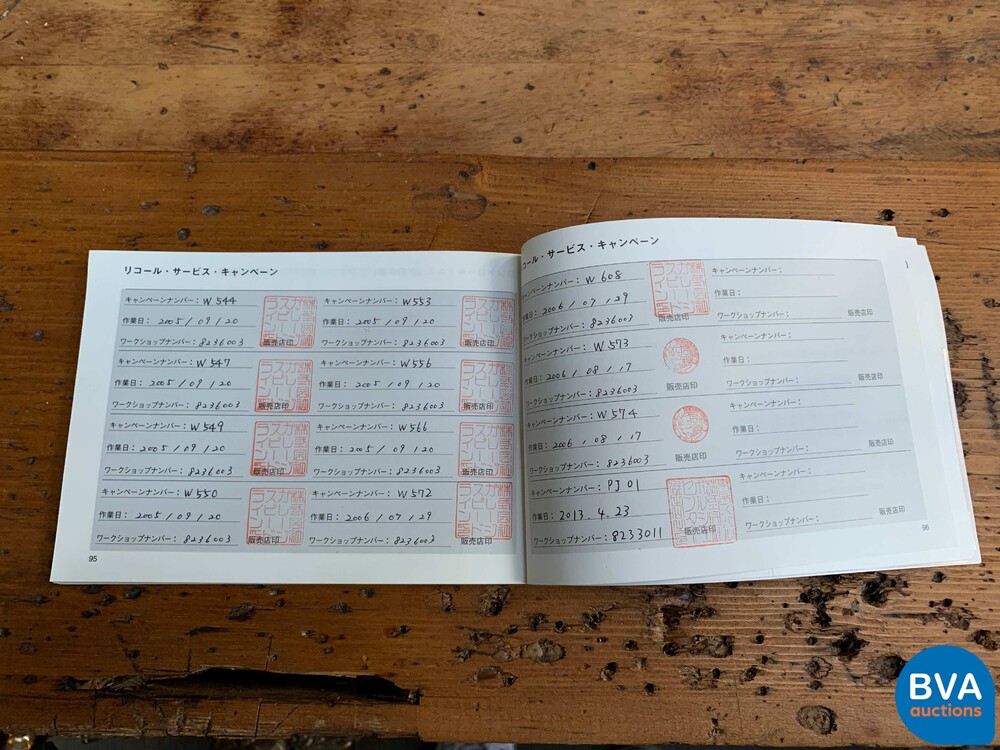 リコール・サービス・キャンペーン
キャンペーンナンバー：W 544
作業日：2005 / 09 / 20
ワークショップナンバー：8236003
販売店印
キャンペーンナンバー：W 553
作業日：2005 / 09 / 20
ワークショップナンバー：8236003
販売店印
キャンペーンナンバー：W 547
作業日：2005 / 09 / 20
ワークショップナンバー：8236003
販売店印
キャンペーンナンバー：W 556
作業日：2005 / 09 / 20
ワークショップナンバー：8236003
販売店印
キャンペーンナンバー：W 549
作業日：2005 / 09 / 20
ワークショップナンバー：8236003
販売店印
キャンペーンナンバー：W 566
作業日：2005 / 09 / 20
ワークショップナンバー：8236003
販売店印
キャンペーンナンバー：W 550
作業日：2005 / 09 / 20
ワークショップナンバー：8236003
販売店印
キャンペーンナンバー：W 572
作業日：2006 / 07 / 29
ワークショップナンバー：8236003
販売店印
95
コール・サービス・キャンペーン
キャンペーンナンバー：W 608
作業日：2006 / 07 / 29
ワークショップナンバー：8236003
販売店印
キャンペーンナンバー：
作業日：
ワークショップナンバー：
販売店印
キャンペーンナンバー：W 573
作業日：2006 / 08 / 17
ワークショップナンバー：8236003
販売店印
キャンペーンナンバー：
作業日：
ワークショップナンバー：
販売店印
キャンペーンナンバー：W 574
作業日：2006 / 08 / 17
ワークショップナンバー：8236003
販売店印
キャンペーンナンバー：
作業日：
ワークショップナンバー：
販売店印
キャンペーンナンバー：PJ 01
作業日：2013. 4. 23
ワークショップナンバー：8233011
販売店印
キャンペーンナンバー：
作業日：
ワークショップナンバー：
販売店印
96
BVA
auctions